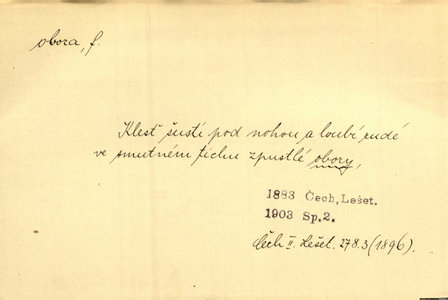 obora, f.
Klesť šustí pod nohou a loubí rudé
ve smutném tichu zpustlé obory,
1883 Čech, Lešet.
1903 Sp. 2.
Čech II. Lešet. 278.3 (1896).